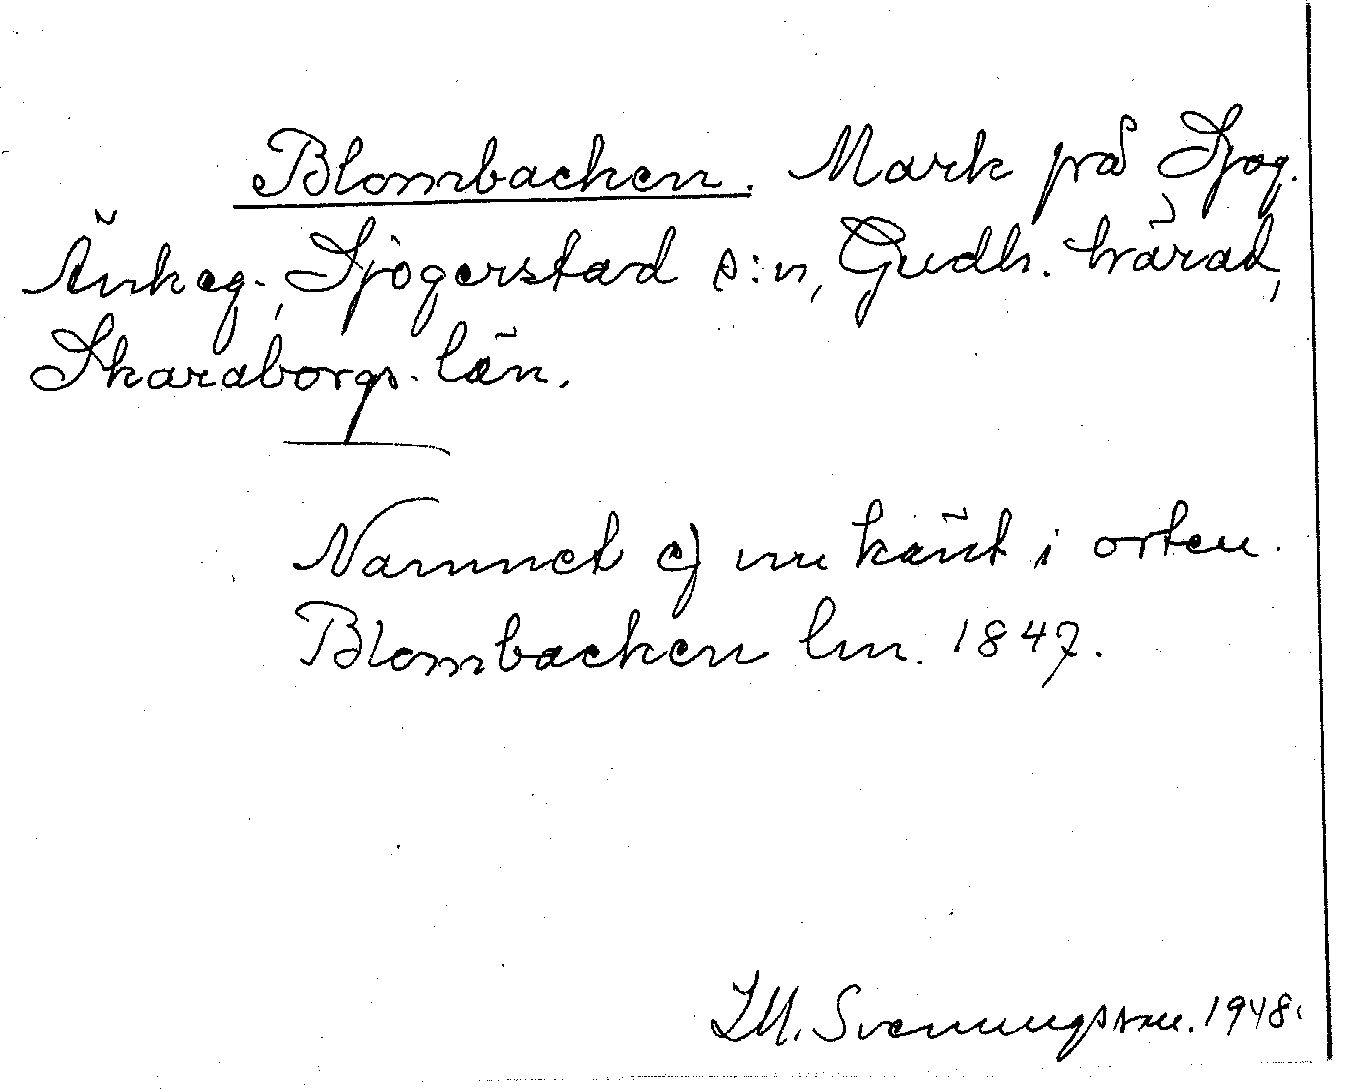 Blombacken. Mark på Sjog.
Änkeg., Sjogerstad s:n, Gudh. härad,
Skaraborgs län.
Namnet ej nu känt i orten.
Blombacken lm. 1847.
I.M. Svenungsson. 1948.